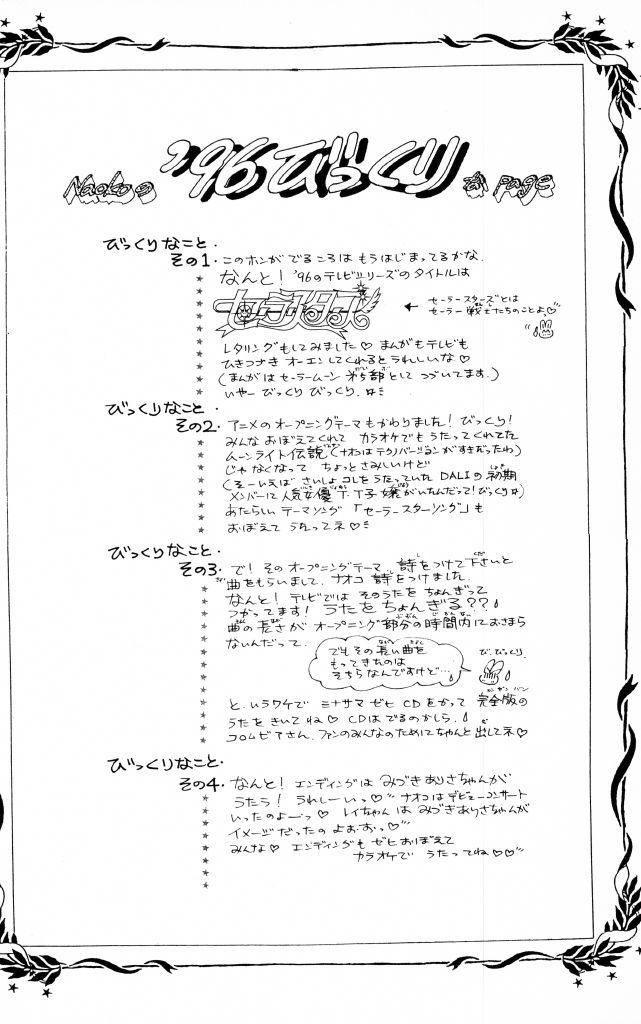 Naokoの '96 びっくり な page
びっくりなこと・
その1・このホンがでるころは もうはじまってるかな。
なんと! '96のテレビシリーズのタイトルは
セーラースターズ
← セーラースターズとは
セーラー戦士たちのことよ♡
レタリングもしてみました♡ まんがもテレビも
ひきつづき オーエンしてくれるとうれしいな♡
(まんがは セーラームーン 第5部として つづいてます。)
いやー びっくり びっくり。
びっくりなこと・
その2・アニメのオープニングテーマもかわりました! びっくり!
みんな おぼえてくれて カラオケでも うたってくれてた
ムーンライト伝説(ナオコはテクノバージョンがすきだったわ)
じゃなくなって ちょっとさみしいけど
(そーいえば さいしょコレをうたっていた DALIの初期
メンバーに人気女優 T・T子嬢がいたんだって! びっくり)
あたらしい テーマソング 「セーラースターソング」も
おぼえて うたってネ♡
びっくりなこと・
その3・で! そのオープニングテーマ、詩をつけて下さいと
曲をもらいまして、ナオコ 詩をつけました。
なんと! テレビでは そのうたを ちょんぎって
つかってます! うたをちょんぎる??
曲の長さが オープニング部分の時間内におさまら
ないんだって。
でもその長い曲を
もってきたのは
そちらなんですけど…
び、びっくり。
と、いうワケで ミナサマ ゼヒ CDをかって 完全版の
うたを きいてね♡ CDは でるのかしら。
コロムビアさん、ファンのみんなのために ちゃんと出してネ♡
びっくりなこと・
その4・なんと! エンディングは みづきありさちゃんが
うたう! うれしーいっ♡ ナオコはデビューコンサート
いったのよーっ♡ レイちゃんは みづきありさちゃんが
イメージだったの よぉ。おっ♡
みんな♡ エンディングも ゼヒ おぼえて
カラオケで うたってね♡♡